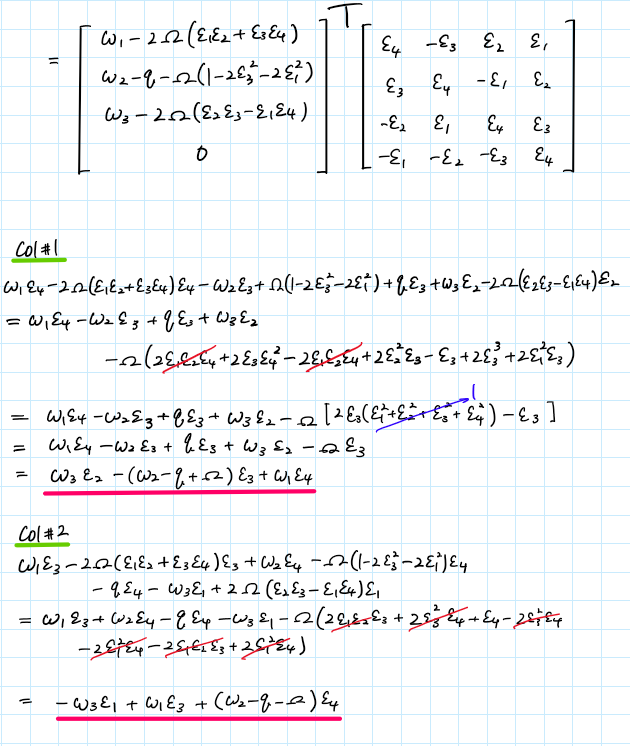 = [ ω₁ - 2Ω(ε₁ε₂ + ε₃ε₄) ]ᵀ [ ε₄ -ε₃ ε₂ ε₁ ]
[ ω₂ - q - Ω(1 - 2ε₃² - 2ε₁²) ] [ ε₃ ε₄ -ε₁ ε₂ ]
[ ω₃ - 2Ω(ε₂ε₃ - ε₁ε₄) ] [ -ε₂ ε₁ ε₄ ε₃ ]
[ 0 ] [ -ε₁ -ε₂ -ε₃ ε₄ ]
Col #1
ω₁ε₄ - 2Ω(ε₁ε₂ + ε₃ε₄)ε₄ - ω₂ε₃ + Ω(1 - 2ε₃² - 2ε₁²) + qε₃ + ω₃ε₂ - 2Ω(ε₂ε₃ - ε₁ε₄)ε₂
= ω₁ε₄ - ω₂ε₃ + qε₃ + ω₃ε₂
- Ω(2ε₁ε₂ε₄ + 2ε₃ε₄² - 2ε₁ε₂ε₄ + 2ε₂²ε₃ - ε₃ + 2ε₃³ + 2ε₁²ε₃)
= ω₁ε₄ - ω₂ε₃ + qε₃ + ω₃ε₂ - Ω[2ε₃(ε₁² + ε₂² + ε₃² + ε₄²) - ε₃] 1
= ω₁ε₄ - ω₂ε₃ + qε₃ + ω₃ε₂ - Ωε₃
= ω₃ε₂ - (ω₂ - q + Ω)ε₃ + ω₁ε₄
Col #2
ω₁ε₃ - 2Ω(ε₁ε₂ + ε₃ε₄)ε₃ + ω₂ε₄ - Ω(1 - 2ε₃² - 2ε₁²)ε₄
- qε₄ - ω₃ε₁ + 2Ω(ε₂ε₃ - ε₁ε₄)ε₁
= ω₁ε₃ + ω₂ε₄ - qε₄ - ω₃ε₁ - Ω(2ε₁ε₂ε₃ + 2ε₃²ε₄ + ε₄ - 2ε₃²ε₄
- 2ε₁²ε₄ - 2ε₁ε₂ε₃ + 2ε₁²ε₄)
= -ω₃ε₁ + ω₁ε₃ + (ω₂ - q - Ω)ε₄